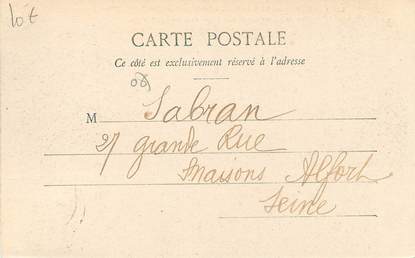 lot
CARTE POSTALE
Ce côté est exclusivement réservé à l'adresse
M Sabran
27 grande Rue
Maisons Alfort
Seine